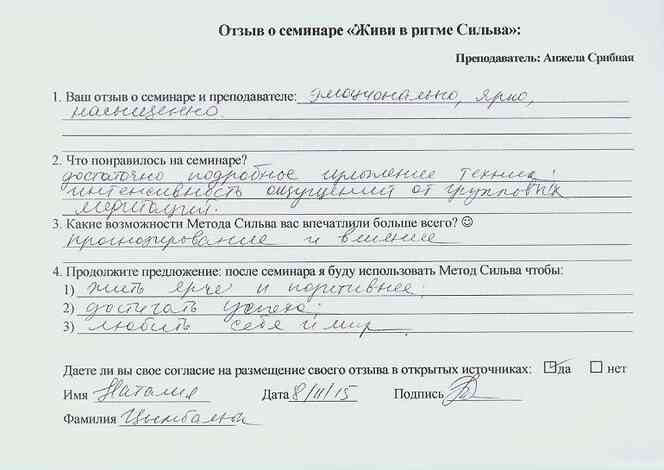 Отзыв о семинаре «Живи в ритме Сильва»:
Преподаватель: Анжела Срибная
1. Ваш отзыв о семинаре и преподавателе: эмоционально, ярко,
насыщенно.
2. Что понравилось на семинаре?
достаточно подробное изложение техник;
интенсивность ощущений от групповых
медитаций.
3. Какие возможности Метода Сильва вас впечатлили больше всего? ☺
прогнозирование и влияние
4. Продолжите предложение: после семинара я буду использовать Метод Сильва чтобы:
1) жить ярче и позитивнее;
2) достигать успеха;
3) любить себя и мир.
Даете ли вы свое согласие на размещение своего отзыва в открытых источниках: ☑ да ☐ нет
Имя Наталия Дата 8/11/15 Подпись
Фамилия